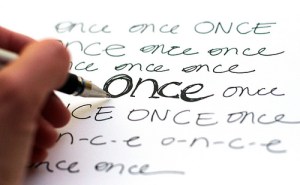 once once ONCE
once once once
once once once
once once
ONCE ONCE once
o-n-c-e o-n-c-e
once once once